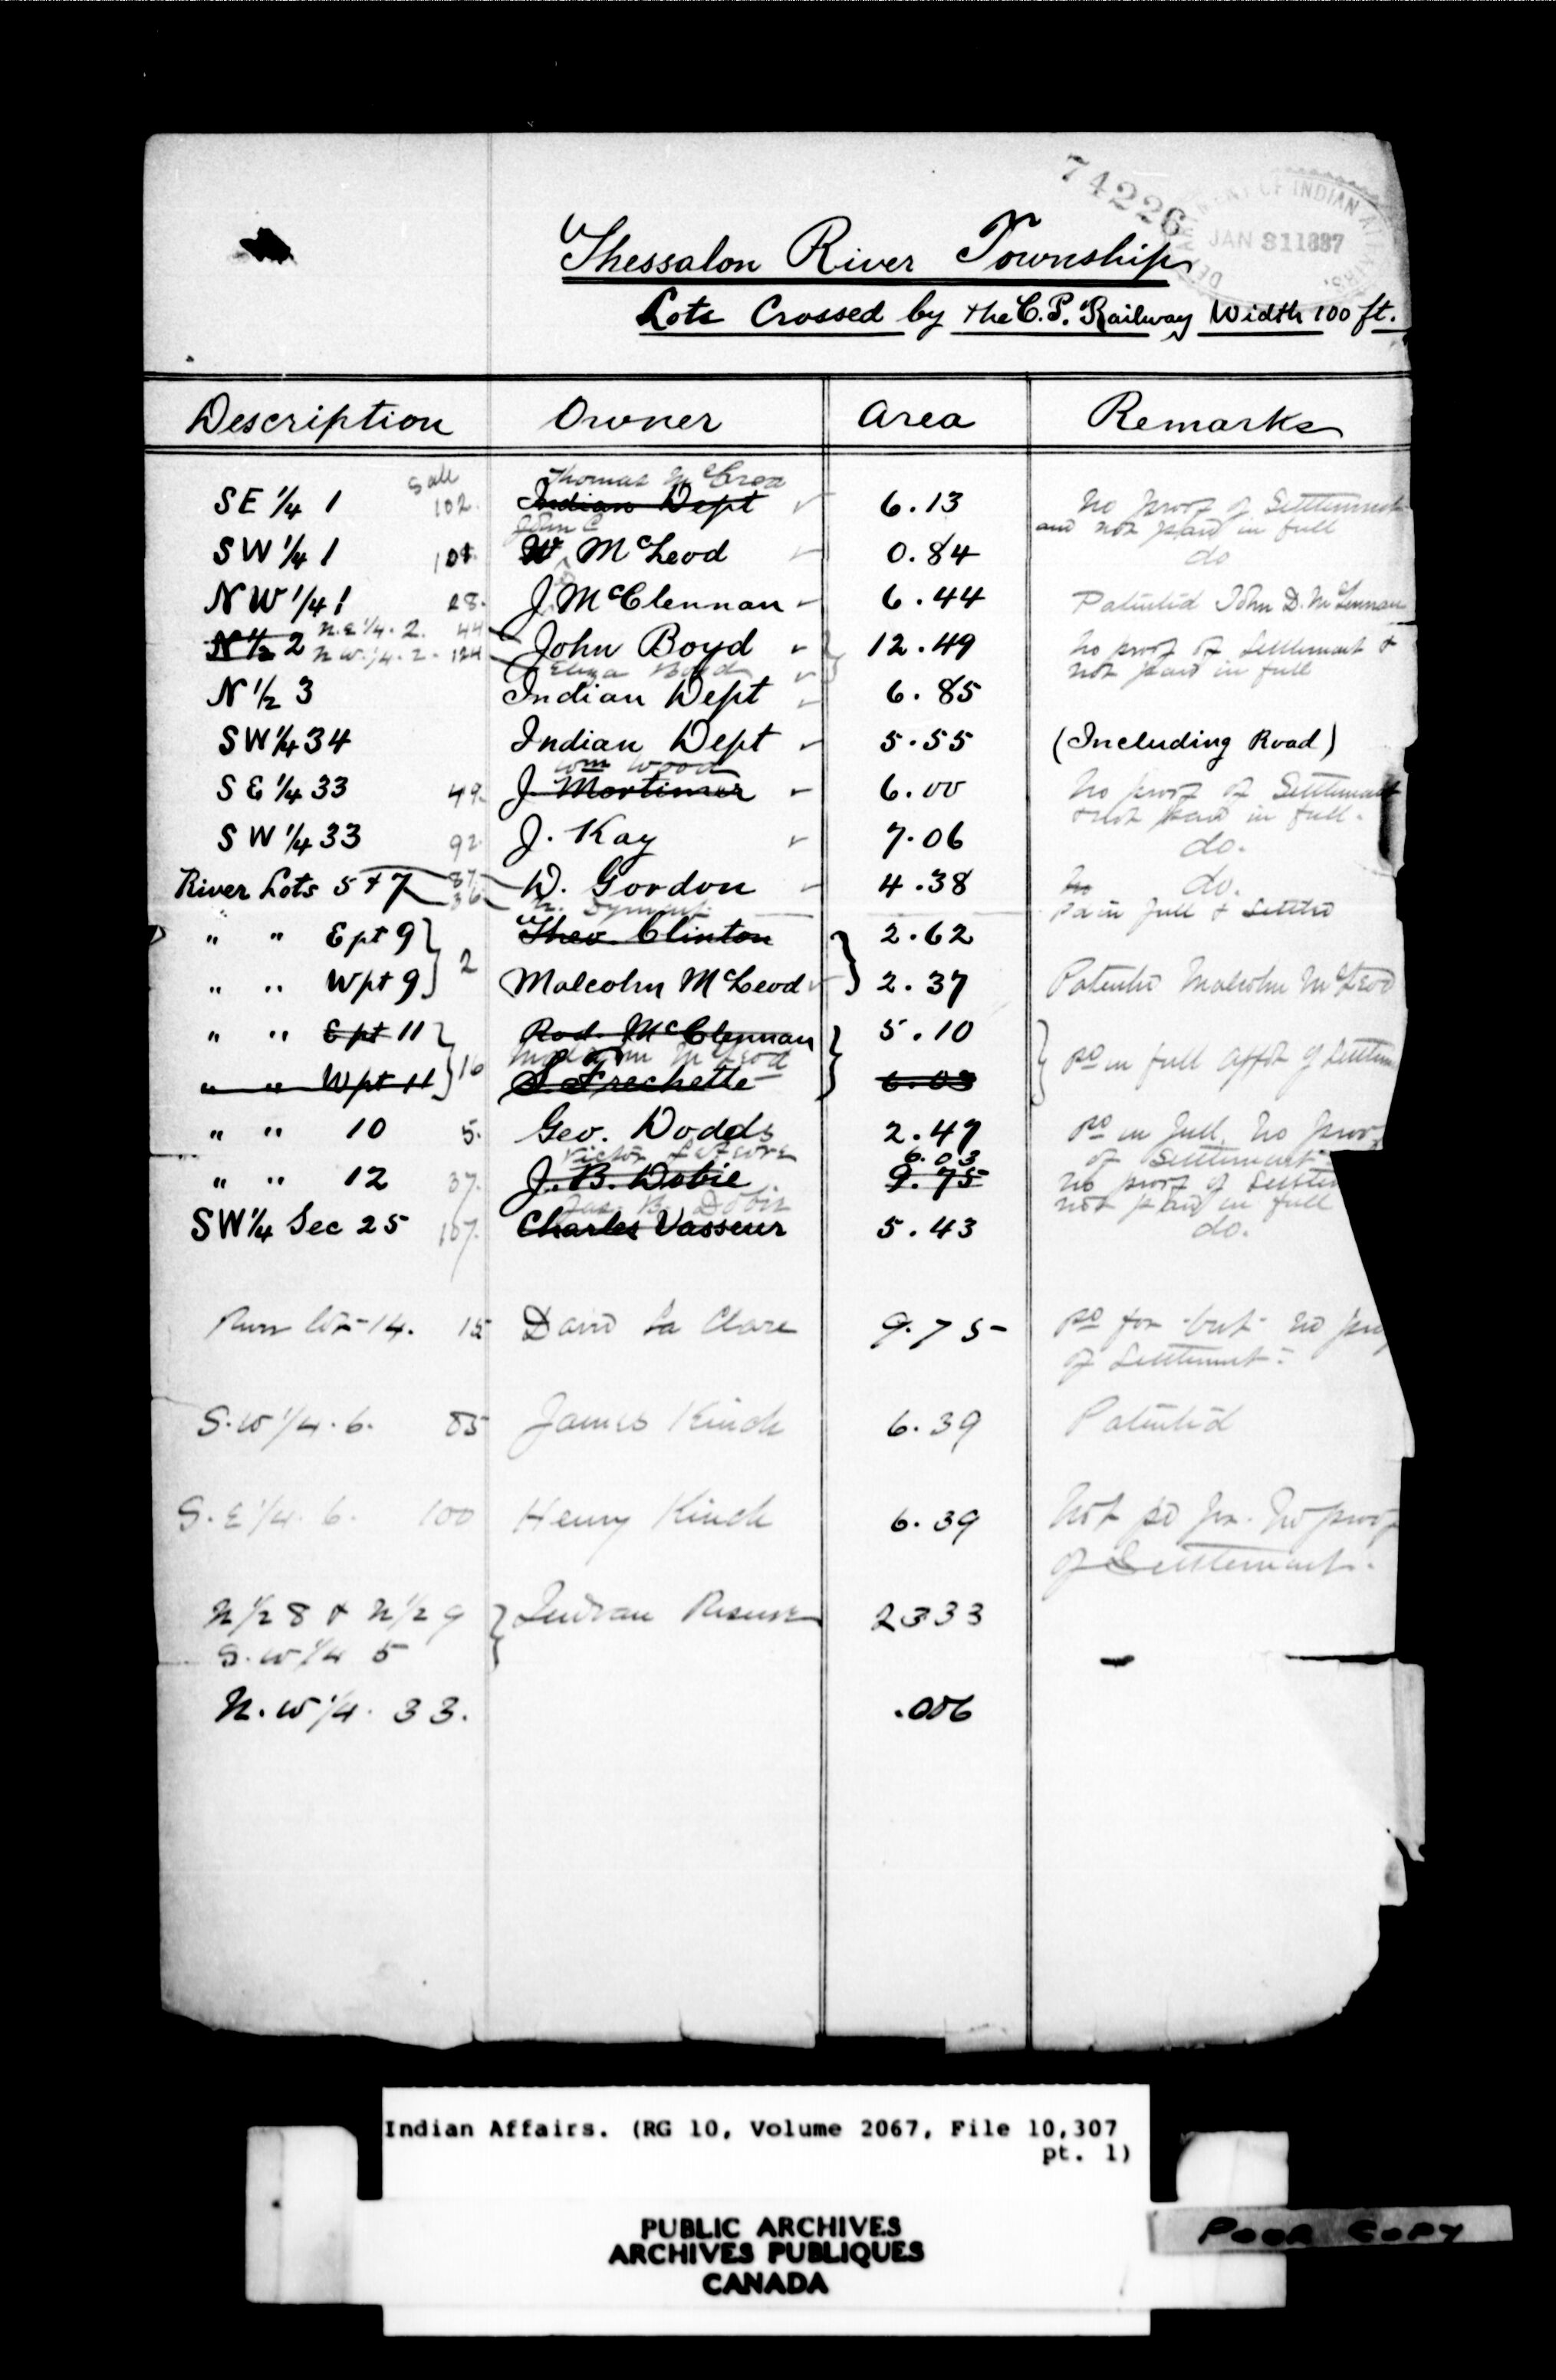 74226
DEPARTMENT OF INDIAN AFFAIRS.
JAN 31 1887
Thessalon River Township
Lots Crossed by the C.P. Railway Width 100 ft.
Description Owner Area Remarks
Sale Thomas McCrea
SE 1/4 1 102. Indian Dept 6.13 No proof of Settlement
and not paid in full
John C
SW 1/4 1 W McLeod 0.84 do
NW 1/4 1 28. J. McClennan 6.44 Patented John D. McLennan
N 1/2 2 N.E 1/4. 2. 44 John Boyd 12.49 No proof of Settlement &
N.W. 1/4. 2. 124 Eliza Boyd not paid in full
N 1/2 3 Indian Dept 6.85
SW 1/4 34 Indian Dept 5.55 (Including Road)
Wm Wood
SE 1/4 33 49. J. Mortimer 6.00 No proof of Settlement
& not paid in full.
SW 1/4 33 92. J. Kay 7.06 do.
River Lots 5 + 7 87 36 W. Gordon 4.38 No do.
N. Dyment. Pd in full & Settled
" " E pt 9 } 2 Theo. Clinton } 2.62
" " W pt 9 Malcolm McLeod 2.37 Patented Malcolm McLeod
" " E pt 11 } 16 Rod. McClennan } 5.10 } pd in full affdt of Settlem
Malcolm McLeod
" " W pt 11 S. Frechette 6.03
" " 10 5. Geo. Dodds 2.47 pd in full. No proof
of Settlement
Victor 6.03
" " 12 37. J. B. Dobie 9.75 No proof of Settlem
not paid in full
Jas. B. Dobie
SW 1/4 Sec 25 107. Charles Vasseur 5.43 do.
River Lot 14. 15 David La Clare 9.75 pd for but no
of Settlement.
S.W 1/4. 6. 85 James Kinch 6.39 Patented
S.E 1/4. 6. 100 Henry Kinch 6.39 Not pd for. No proof
of Settlement.
N 1/2 8 & N 1/2 9 } Indian Reserve 23.33
S.W 1/4 5
N.W 1/4. 33. .006
Indian Affairs. (RG 10, Volume 2067, File 10,307
pt. 1)
PUBLIC ARCHIVES
ARCHIVES PUBLIQUES
CANADA
POOR COPY